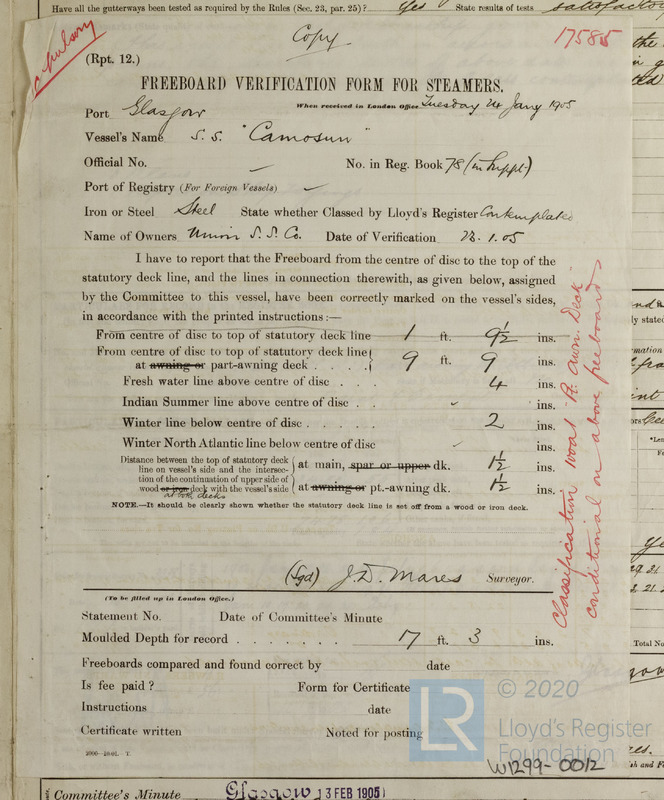 Have all the gutterways been tested as required by the Rules (Sec. 23, par. 25)? Yes State results of tests satisfactory
Copy
17585
(Rpt. 12.)
FREEBOARD VERIFICATION FORM FOR STEAMERS.
When received in London Office Tuesday 24 Jany 1905
Port Glasgow
Vessel's Name S.S. "Camosun"
Official No. No. in Reg. Book 78 (in Suppt.)
Port of Registry (For Foreign Vessels)
Iron or Steel Steel State whether Classed by Lloyd's Register Contemplated
Name of Owners Union S.S. Co. Date of Verification 1.05
I have to report that the Freeboard from the centre of disc to the top of the
statutory deck line, and the lines in connection therewith, as given below, assigned
by the Committee to this vessel, have been correctly marked on the vessel's sides,
in accordance with the printed instructions:—
From centre of disc to top of statutory deck line 1 ft. 9½ ins.
From centre of disc to top of statutory deck line
at awning or part-awning deck . . . . 9 ft. 9 ins.
Fresh water line above centre of disc . . . 4 ins.
Indian Summer line above centre of disc . ins.
Winter line below centre of disc . . . . . 2 ins.
Winter North Atlantic line below centre of disc ins.
Distance between the top of statutory deck
line on vessel's side and the intersec-
tion of the continuation of upper side of
wood or iron deck with the vessel's side
at both decks
at main, spar or upper dk. 1½ ins.
at awning or pt.-awning dk. 1½ ins.
NOTE.—It should be clearly shown whether the statutory deck line is set off from a wood or iron deck.
Classification 100A1 Pt. Awn. Deck
conditional on above freeboard
(Sgd) J. D. Mares Surveyor.
(To be filled up in London Office.)
Statement No. Date of Committee's Minute
Moulded Depth for record . . . . . . . 17 ft. 3 ins.
Freeboards compared and found correct by date
Is fee paid? Form for Certificate
Instructions date
Certificate written Noted for posting
LR
© 2020
Lloyd's Register
Foundation
W1299-0012
Committee's Minute Glasgow 13 FEB 1905